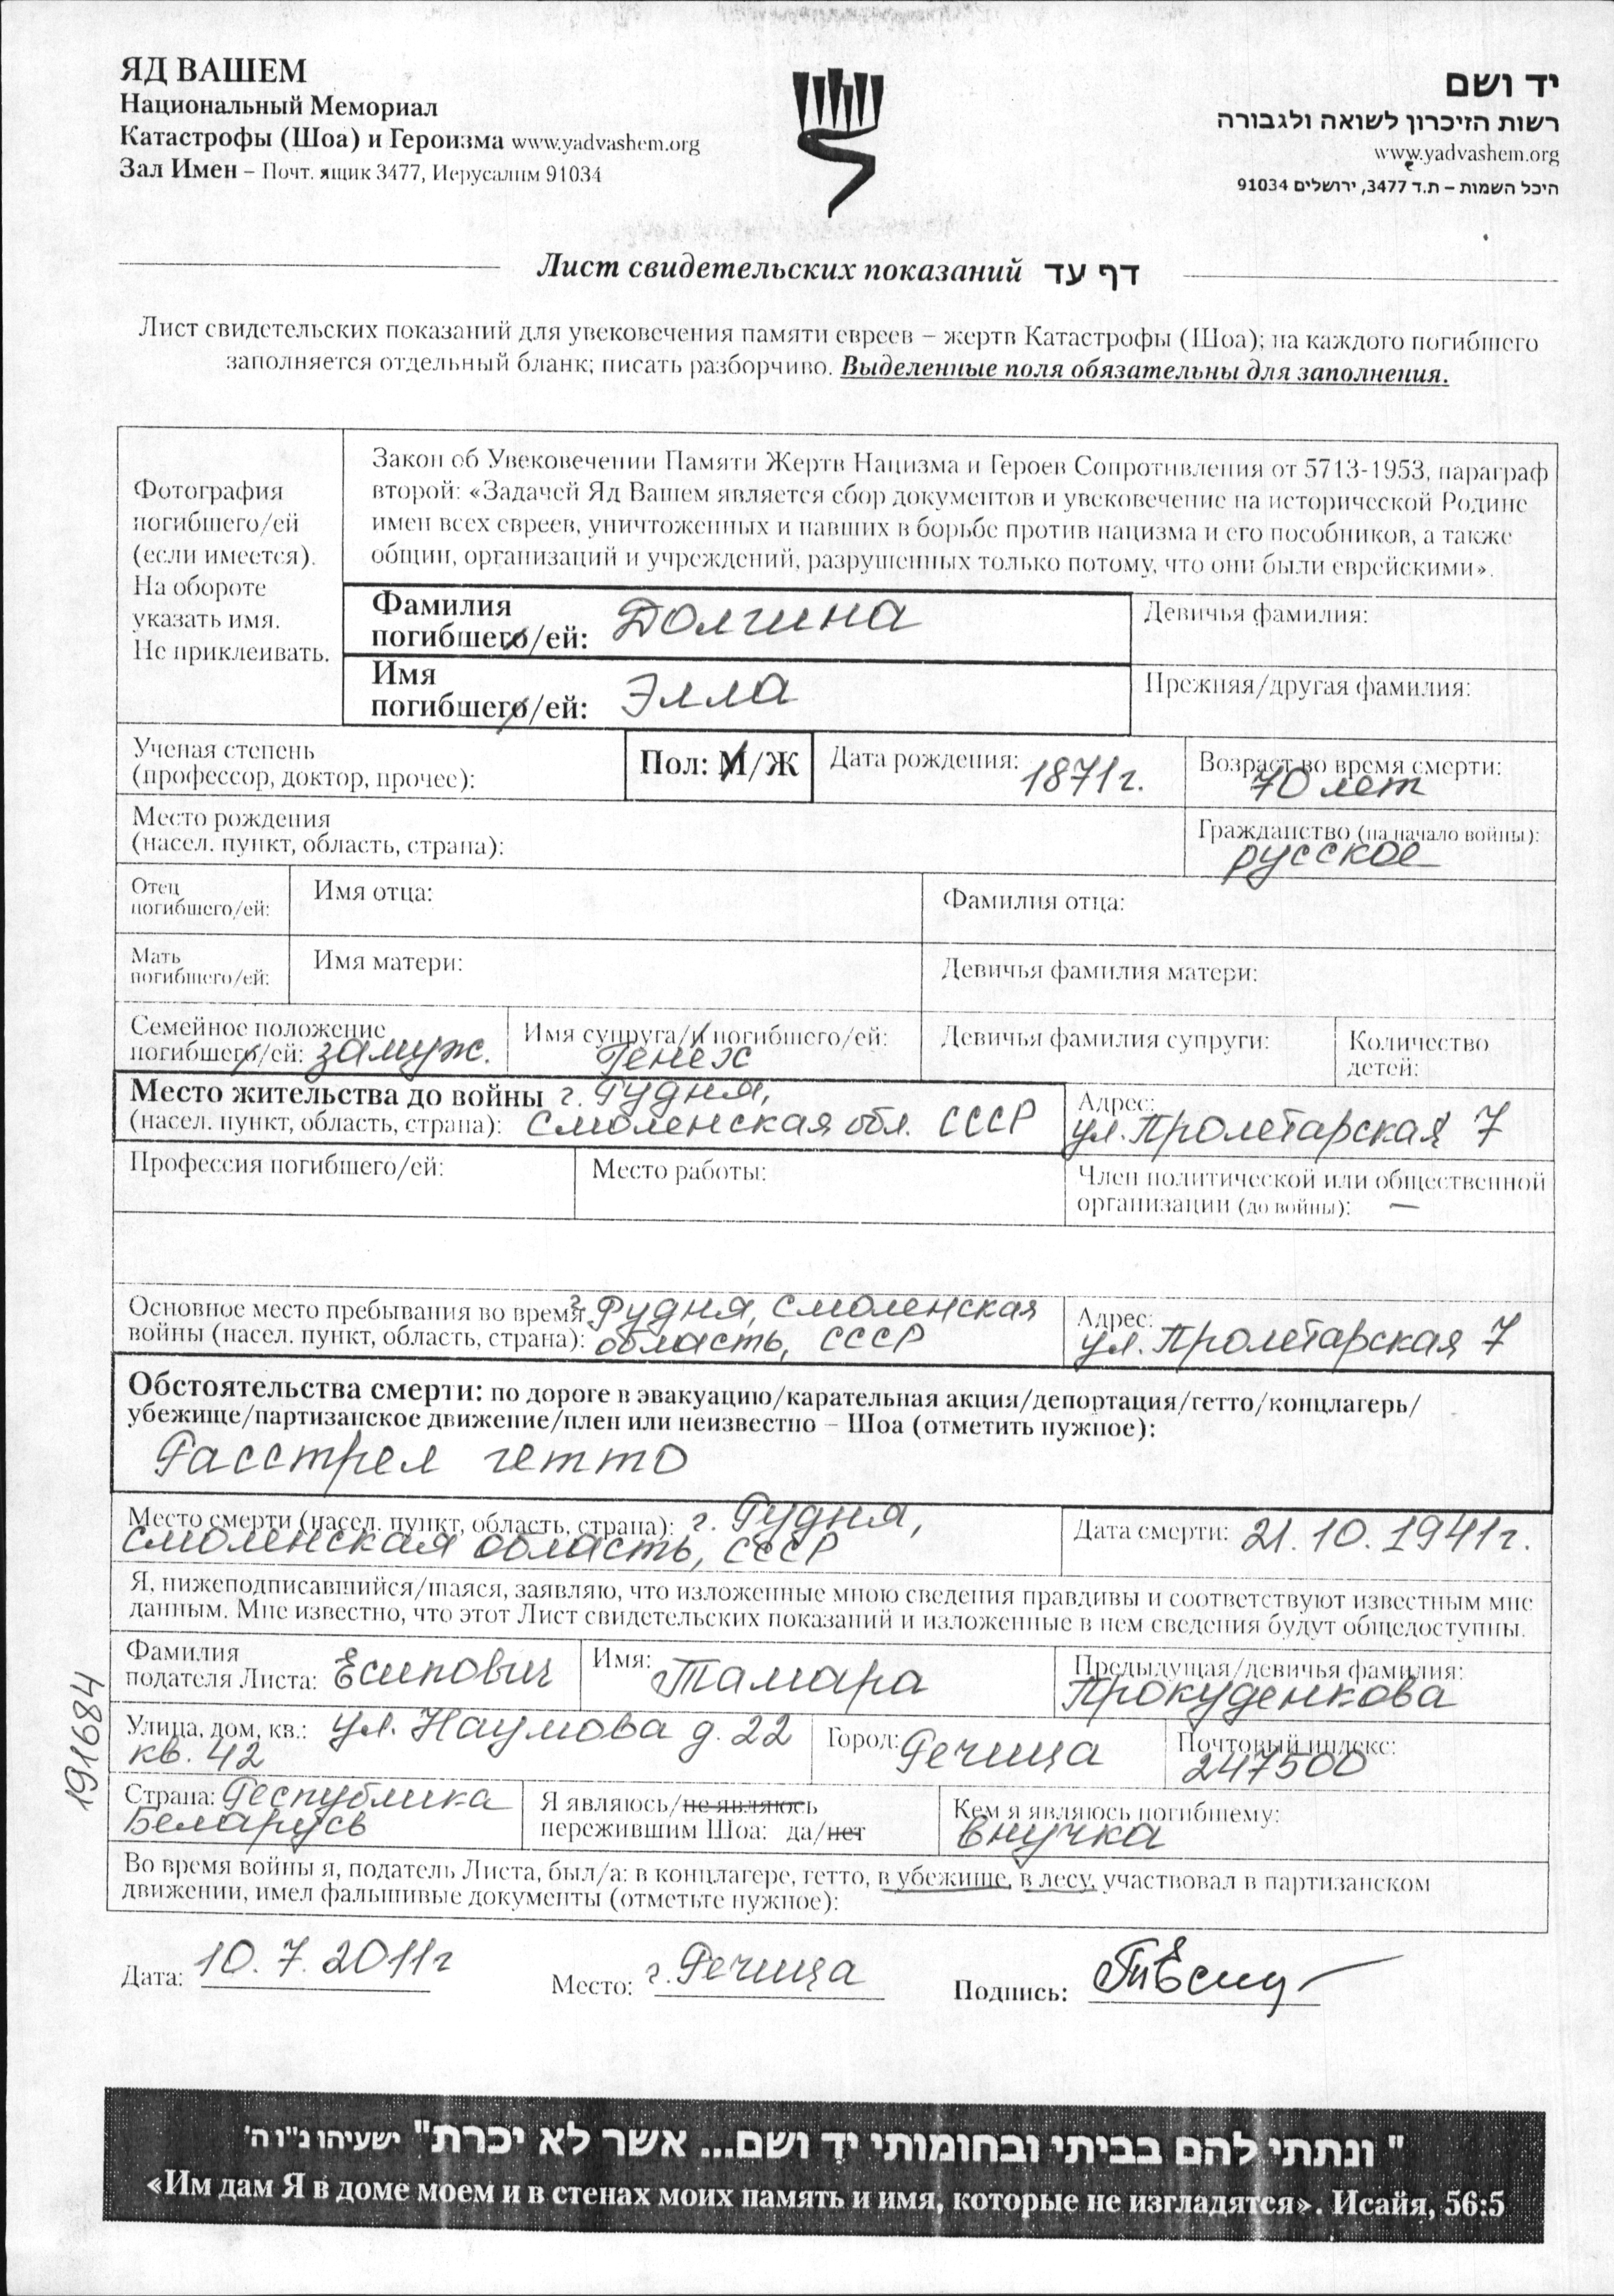 ЯД ВАШЕМ
Национальный Мемориал
Катастрофы (Шоа) и Героизма www.yadvashem.org
Зал Имен – Почт. ящик 3477, Иерусалим 91034
יד ושם
רשות הזיכרון לשואה ולגבורה
www.yadvashem.org
היכל השמות – ת.ד 3477, ירושלים 91034
Лист свидетельских показаний דף עד
Лист свидетельских показаний для увековечения памяти евреев – жертв Катастрофы (Шоа); на каждого погибшего
заполняется отдельный бланк; писать разборчиво. Выделенные поля обязательны для заполнения.
Фотография
погибшего/ей
(если имеется).
На обороте
указать имя.
Не приклеивать.
Закон об Увековечении Памяти Жертв Нацизма и Героев Сопротивления от 5713-1953, параграф
второй: «Задачей Яд Вашем является сбор документов и увековечение на исторической Родине
имен всех евреев, уничтоженных и павших в борьбе против нацизма и его пособников, а также
общин, организаций и учреждений, разрушенных только потому, что они были еврейскими».
Фамилия
погибшего/ей: Долгина
Девичья фамилия:
Имя
погибшего/ей: Элла
Прежняя/другая фамилия:
Ученая степень
(профессор, доктор, прочее):
Пол: М/Ж
Дата рождения: 1871г.
Возраст во время смерти:
70 лет
Место рождения
(насел. пункт, область, страна):
Гражданство (на начало войны):
русское
Отец
погибшего/ей:
Имя отца:
Фамилия отца:
Мать
погибшего/ей:
Имя матери:
Девичья фамилия матери:
Семейное положение
погибшего/ей: замуж.
Имя супруга/и погибшего/ей:
Генех
Девичья фамилия супруги:
Количество
детей:
Место жительства до войны г. Рудня,
(насел. пункт, область, страна): Смоленская обл. СССР
Адрес:
ул. Пролетарская 7
Профессия погибшего/ей:
Место работы:
Член политической или общественной
организации (до войны): —
Основное место пребывания во время г. Рудня, Смоленская
войны (насел. пункт, область, страна): область, СССР
Адрес:
ул. Пролетарская 7
Обстоятельства смерти: по дороге в эвакуацию/карательная акция/депортация/гетто/концлагерь/
убежище/партизанское движение/плен или неизвестно – Шоа (отметить нужное):
Расстрел гетто
Место смерти (насел. пункт, область, страна): г. Рудня,
Смоленская область, СССР
Дата смерти: 21.10.1941г.
Я, нижеподписавшийся/шаяся, заявляю, что изложенные мною сведения правдивы и соответствуют известным мне
данным. Мне известно, что этот Лист свидетельских показаний и изложенные в нем сведения будут общедоступны.
Фамилия
подателя Листа: Есипович
Имя: Тамара
Предыдущая/девичья фамилия:
Прокуденкова
Улица, дом, кв.: ул. Наумова д. 22
кв. 42
Город: Речица
Почтовый индекс:
247500
Страна: Республика
Беларусь
Я являюсь/не являюсь
пережившим Шоа: да/нет
Кем я являюсь погибшему:
внучка
Во время войны я, податель Листа, был/а: в концлагере, гетто, в убежище, в лесу, участвовал в партизанском
движении, имел фальшивые документы (отметьте нужное):
191684
Дата: 10.7.2011г
Место: г. Речица
Подпись:
" ונתתי להם בביתי ובחומותי יד ושם... אשר לא יכרת" ישעיהו נ"ו ה'
«Им дам Я в доме моем и в стенах моих память и имя, которые не изгладятся». Исайя, 56:5